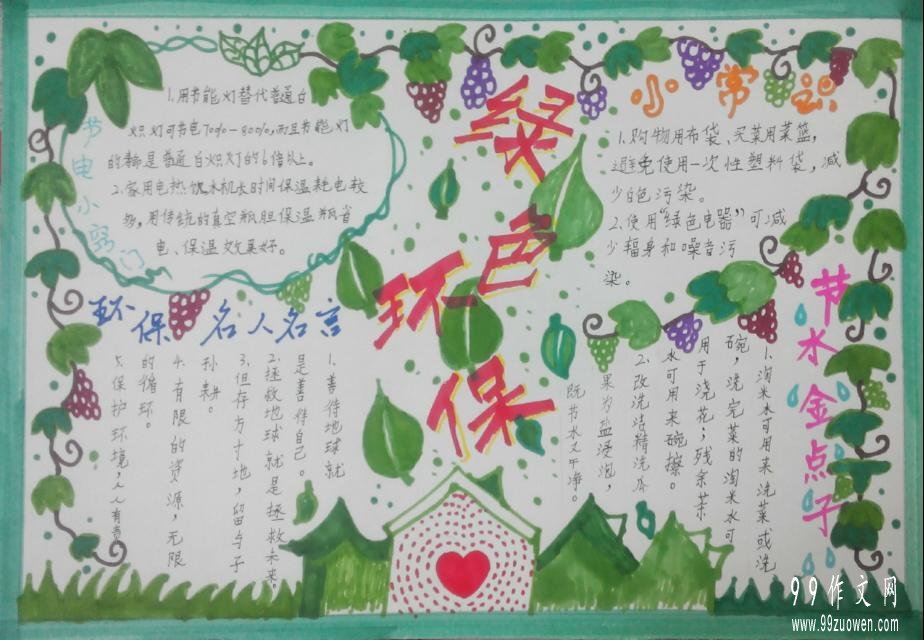 绿色环保
节电小窍门
1.用节能灯替代普通白
炽灯可节电70%-80%,而且节能灯
的寿命是普通白炽灯的6倍以上。
2.家用电热饮水机长时间保温耗电较
多,用传统的真空瓶胆保温瓶省
电、保温效果好。
小常识
1.购物用布袋、买菜用菜篮,
避免使用一次性塑料袋,减
少白色污染。
2.使用“绿色电器”可减
少辐身和噪音污
染。
环保名人名言
1.善待地球就
是善待自己。
2.拯救地球就是拯救未来。
3.但存方寸地,留与子
孙耕。
4.有限的资源,无限
的循环。
5.保护环境,人人有责
节水金点子
1.淘米水可用来洗菜或洗
碗,洗完菜的淘米水可
用于浇花;残余茶
水可用来碗擦。
2.改洗洁精洗瓜
果为盐浸泡,
既节水又干净。
99作文网
www.99zuowen.com